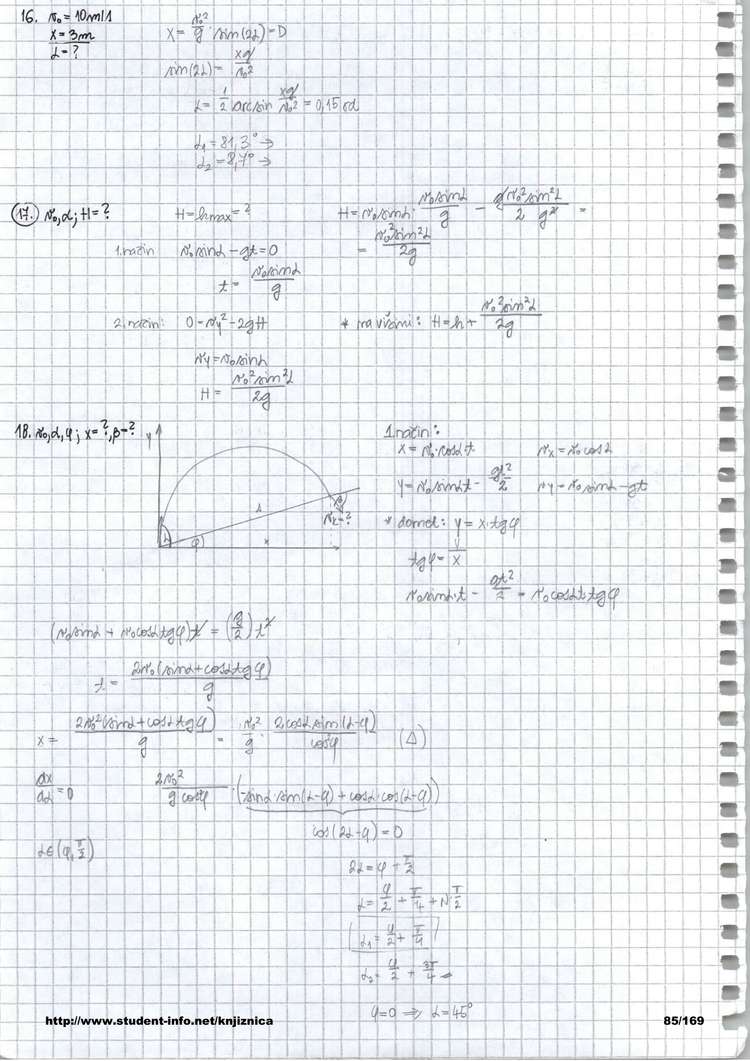 16. v₀ = 10m/s
x = 3m
α = ?
x = v₀²/g · sin(2α) = D
sin(2α) = xg/v₀²
α = 1/2 arcsin xg/v₀² = 0,15 rd
α₁ = 81,3° →
α₂ = 8,7° →
17. v₀, α; H = ?
H = hmax = ?
1. način v₀sinα - gt = 0
t = v₀sinα/g
H = v₀sinα · v₀sinα/g - g/2 v₀²sin²α/g² =
= v₀²sin²α/2g
2. način: 0 = vy² - 2gH
vy = v₀sinα
H = v₀²sin²α/2g
* na višini: H = h + v₀²sin²α/2g
18. v₀, α, φ; x = ?, β = ?
y
β
vk = ?
α
φ
x
1. način:
x = v₀·cosα t
vx = v₀cosα
y = v₀sinα t - gt²/2
vy = v₀sinα - gt
* domet: y = x·tgφ
tgφ = y/x
v₀sinα·t - gt²/2 = v₀cosαt·tgφ
(v₀sinα + v₀cosαtgφ)t = (g/2)t²
t = 2v₀(sinα + cosαtgφ)/g
x = 2v₀²(sinα + cosαtgφ)/g = v₀²/g · 2cosα sin(α-φ)/cosφ (Δ)
dx/dα = 0
2v₀²/g cosφ · (-sinα·sin(α-φ) + cosα·cos(α-φ))
cos(2α-φ) = 0
α∈(φ, π/2)
2α = φ + π/2
α = φ/2 + π/4 + N·π/2
α₁ = φ/2 + π/4
α₂ = φ/2 + 3π/4
φ = 0 ⇒ α = 45°
http://www.student-info.net/knjiznica
85/169